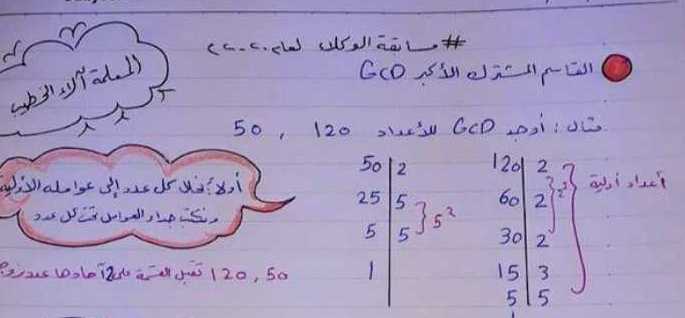 # مسابقة الوكلاء لعام ٢٠٢٠
القاسم المشترك الأكبر GCD
المعلمة آلاء الخطيب
مثال : أوجد GCD للأعداد 120 , 50
أولاً: نحلل كل عدد إلى عوامله الأولية
ونكتب جداء العوامل تحت كل عدد
50 | 2
25 | 5
5 | 5
1
5²
120 | 2
60 | 2
30 | 2
15 | 3
5 | 5
2³
أعداد أولية
120 , 50 تقبل القسمة على 2 آحادها عدد زوجي